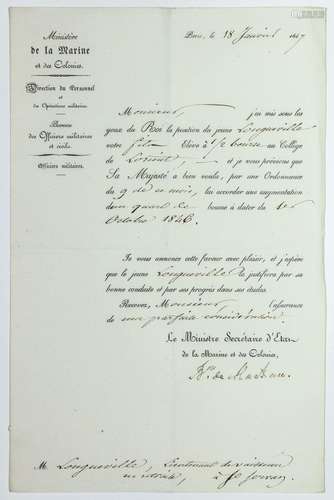 Ministère
de la Marine
et des Colonies.
Direction du Personnel
et
des Opérations militaires.
Bureau
des Officiers militaires
et civils.
Officiers militaires.
Paris, le 18 Janvier 1847
Monsieur, j'ai mis sous les
yeux du Roi la position du jeune Longueville
votre fils, Elève à 1/2 bourse au Collège
de Lorient, et je vous préviens que
Sa Majesté a bien voulu, par une Ordonnance
du 9 de ce mois, lui accorder une augmentation
d'un quart de bourse à dater du 1er
Octobre 1846.
Je vous annonce cette faveur avec plaisir, et j'espère
que le jeune Longueville la justifiera par sa
bonne conduite et par ses progrès dans ses études.
Recevez, Monsieur, l'assurance
de ma parfaite considération.
Le Ministre Secrétaire d'Etat
de la Marine et des Colonies,
Bn. de Mackau.
M. Longueville, Lieutenant de vaisseau
en retraite, à St